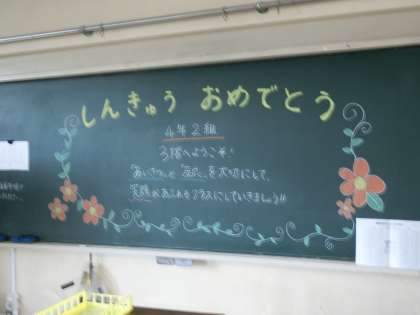 しんきゅう おめでとう
4年2組
3階へようこそ!
あいさつと を大切にして、
笑顔があふれるクラスにしていきましょう!!